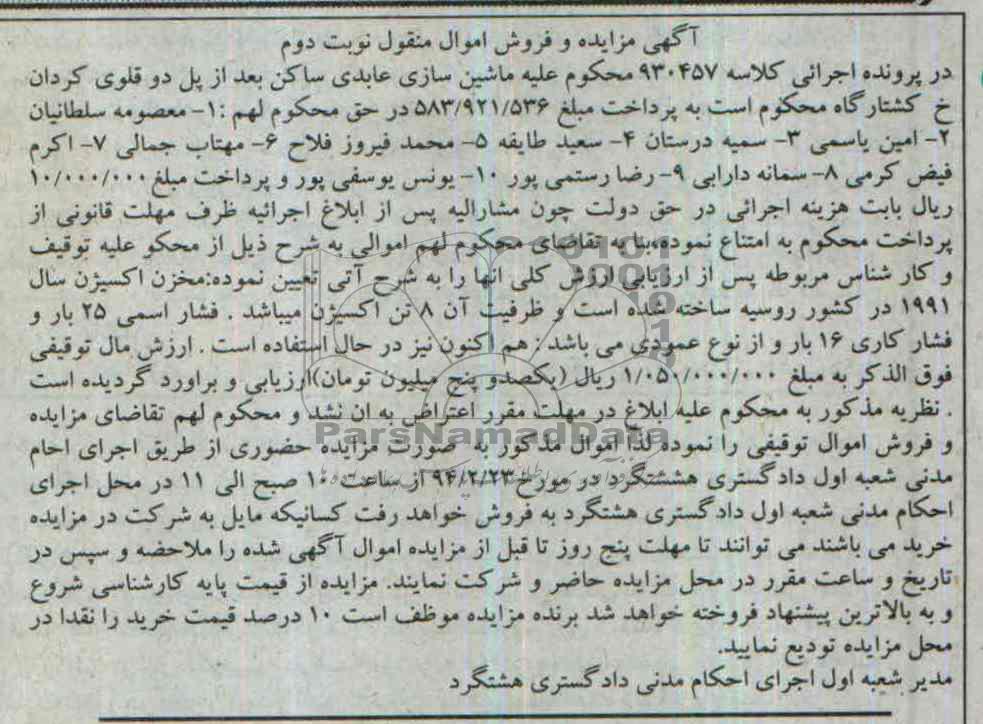 آگهی مزایده و فروش اموال منقول نوبت دوم
در پرونده اجرائی کلاسه ۹۳۰۴۵۷ محکوم علیه ماشین سازی عابدی ساکن بعد از پل دو قلوی کردان
خ کشتارگاه محکوم است به پرداخت مبلغ ۵۸۳/۹۲۱/۵۳۶ در حق محکوم لهم :۱- معصومه سلطانیان
۲- امین یاسمی ۳- سمیه درستان ۴- سعید طایفه ۵- محمد فیروز فلاح ۶- مهتاب جمالی ۷- اکرم
فیض کرمی ۸- سمانه دارابی ۹- رضا رستمی پور ۱۰- یونس یوسفی پور و پرداخت مبلغ ۱۰/۰۰۰/۰۰۰
ریال بابت هزینه اجرائی در حق دولت چون مشارالیه پس از ابلاغ اجرائیه ظرف مهلت قانونی از
پرداخت محکوم به امتناع نموده،بنا به تقاضای محکوم لهم اموالی به شرح ذیل از محکو علیه توقیف
و کار شناس مربوطه پس از ارزیابی ارزش کلی انها را به شرح آتی تعیین نموده:مخزن اکسیژن سال
۱۹۹۱ در کشور روسیه ساخته شده است و ظرفیت آن ۸ تن اکسیژن میباشد . فشار اسمی ۲۵ بار و
فشار کاری ۱۶ بار و از نوع عمودی می باشد : هم اکنون نیز در حال استفاده است . ارزش مال توقیفی
فوق الذکر به مبلغ ۱/۰۵۰/۰۰۰/۰۰۰ ریال (یکصدو پنج میلیون تومان)ارزیابی و براورد گردیده است
. نظریه مذکور به محکوم علیه ابلاغ در مهلت مقرر اعتراض به ان نشد و محکوم لهم تقاضای مزایده
و فروش اموال توقیفی را نموده لذا اموال مذکور به صورت مزایده حضوری از طریق اجرای احام
مدنی شعبه اول دادگستری هشتگرد در مورخ ۹۴/۲/۲۳ از ساعت ۱۰ صبح الی ۱۱ در محل اجرای
احکام مدنی شعبه اول دادگستری هشتگرد به فروش خواهد رفت کسانیکه مایل به شرکت در مزایده
خرید می باشند می توانند تا مهلت پنج روز تا قبل از مزایده اموال آگهی شده را ملاحضه و سپس در
تاریخ و ساعت مقرر در محل مزایده حاضر و شرکت نمایند. مزایده از قیمت پایه کارشناسی شروع
و به بالاترین پیشنهاد فروخته خواهد شد برنده مزایده موظف است ۱۰ درصد قیمت خرید را نقدا در
محل مزایده تودیع نمایید.
مدیر شعبه اول اجرای احکام مدنی دادگستری هشتگرد
ParsNamadData